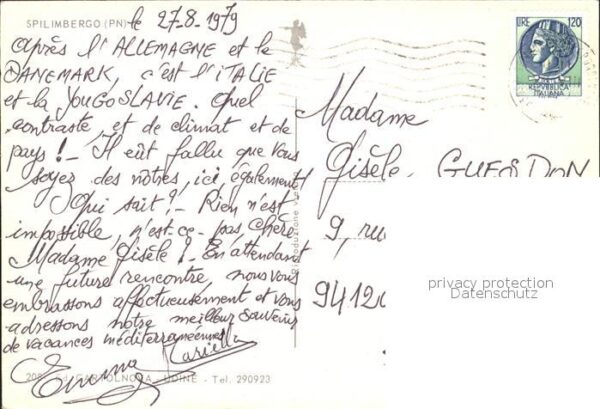 SPILIMBERGO (PN)
le 27-8-1979
après l'ALLEMAGNE et le
DANEMARK, c'est l'ITALIE
et la YOUGOSLAVIE. Quel
contraste et de climat et de
pays! - Il eût fallu que vous
soyez des nôtres, ici, également!
Qui sait? - Rien n'est
impossible, n'est-ce-pas, Chère
Madame Gisèle! - En attendant
une future rencontre, nous vous
embrassons affectueusement et vous
adressons notre meilleur souvenir
de vacances méditerranéennes
Mariella
Emma
LIRE 120
REPVBBLICA
ITALIANA
Madame
Gisèle GUESDON
9, rue
9412
privacy protection
Datenschutz
Ed. CARTOLNOVA - UDINE - Tel. 290923